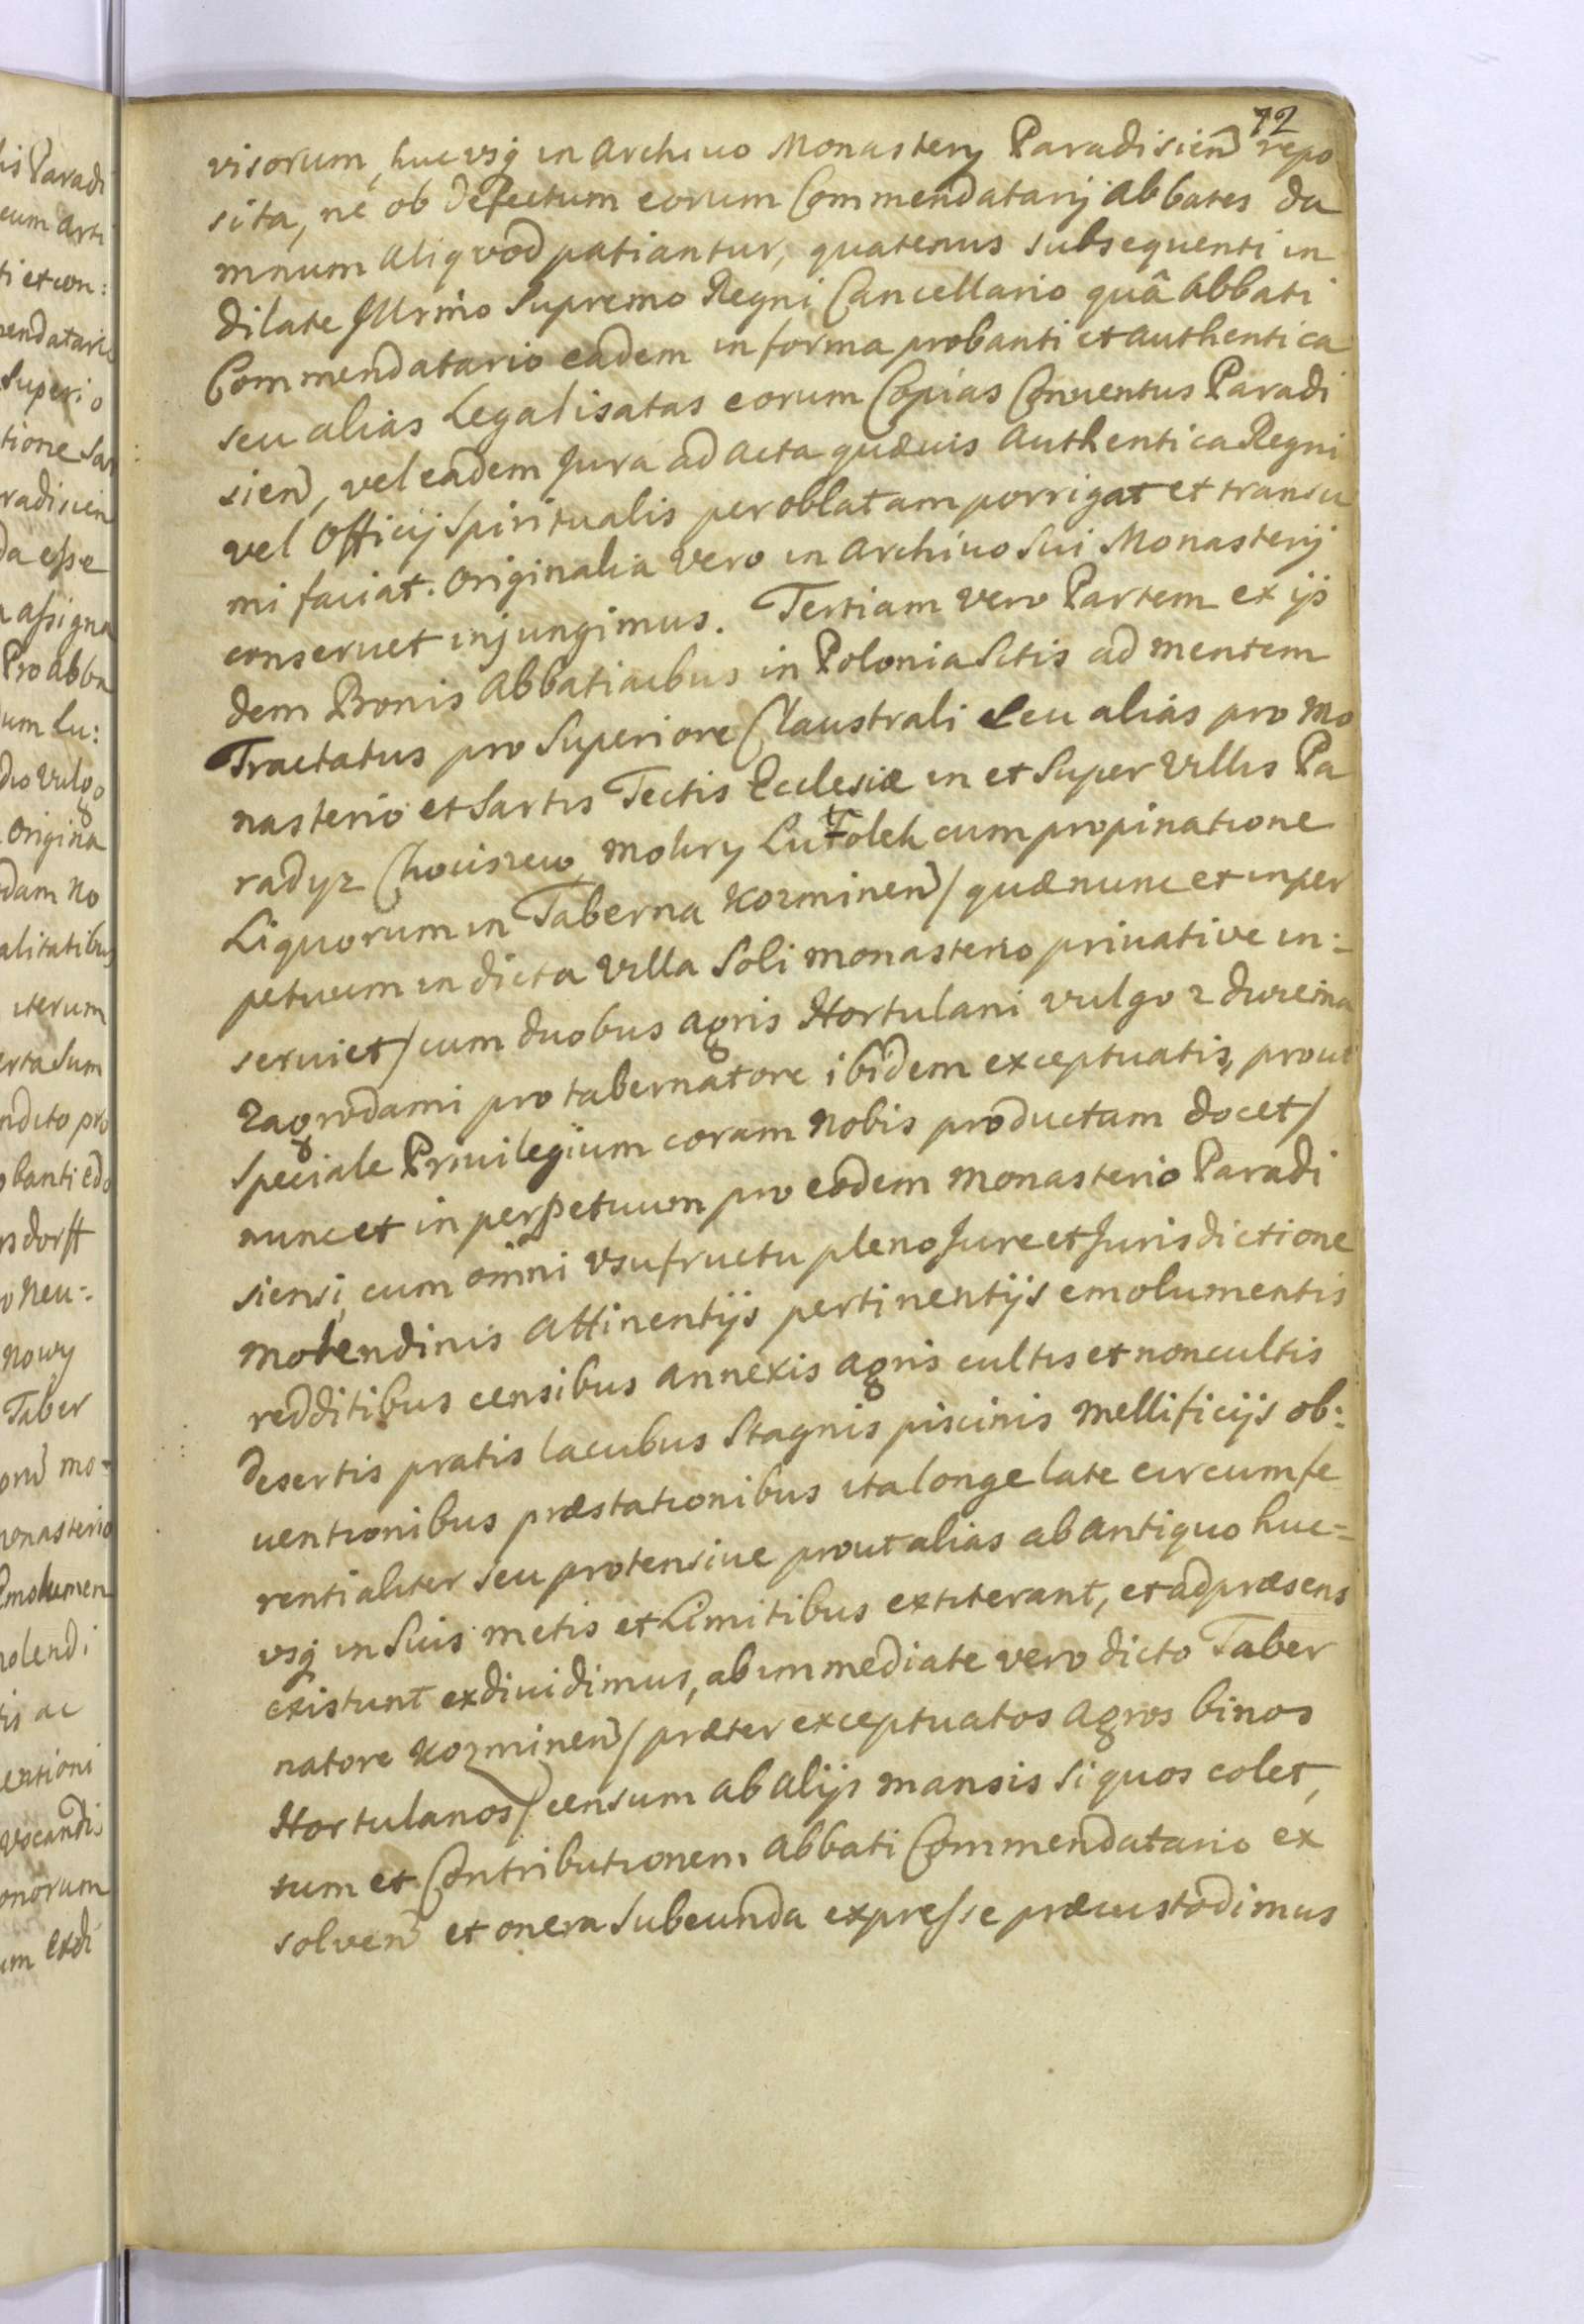 72
visorum, huc vsq̃ in Archiuo Monastery Paradisien̄ repo
sita, ne ob defectum eorum Commendatarij Abbates da
mnum aliqvod patiantur, quatenus subsequenti in
dilate Jllrm̃o Supremo Regni Cancellario quâ Abbati
Commendatario eadem in forma probanti et authentica
seu alias Legalisatas eorum Copias Conuentus Paradi
sien̄, vel eadem Jura ad Acta quæuis Authentica Regni
vel Officij Spiritualis per oblatam porrigat et transu
mi faciat. Originalia vero in Archiuo Sui Monasterij
conseruet injungimus. Tertiam vero Partem ex ijs
dem Bonis Abbatialibus in Polonia Sitis ad mentem
Tractatus pro Superiore Claustrali Seu alias pro Mo
nasterio et Sartis Tectis Ecclesiæ in et Super Villis Pa
radyz Chociszew, Mokry Lutolek cum propinatione
Liquorum in Taberna Kozminen̄ / quæ nunc et in per
petuum in dicta Villa Soli monasterio priuative in:
seruiet / cum duobus agris Hortulani vulgo z dwiema
Zagrodami pro tabernatore ibidem exceptuatis, prout
Speciale Priuilegium coram Nobis productam docet /
nunc et in perpetuum pro eodem Monasterio Paradi
siensi, cum omni vsufructu pleno Jure et Jurisdictione
Molendinis Attinentijs pertinentijs emolumentis
redditibus censibus annexis agris cultis et noncultis
desertis pratis lacubus Stagnis piscinis Mellificijs ob:
uentionibus præstationibus ita longe late circumfe
rentialiter seu protensiue prout alias ab antiquo huc=
vsq̃ in Suis metis et Limitibus extiterant, et ad præsens
existunt exdiuidimus, ab immediate vero dicto Taber
natore Kozminen̄ / præter exceptuatos Agros binos
Hortulanos / censum ab alijs mansis si quos colet,
tum et Contributionem Abbati Commendatario ex
solven̄ et onera Subeunda expresse præcustodimus